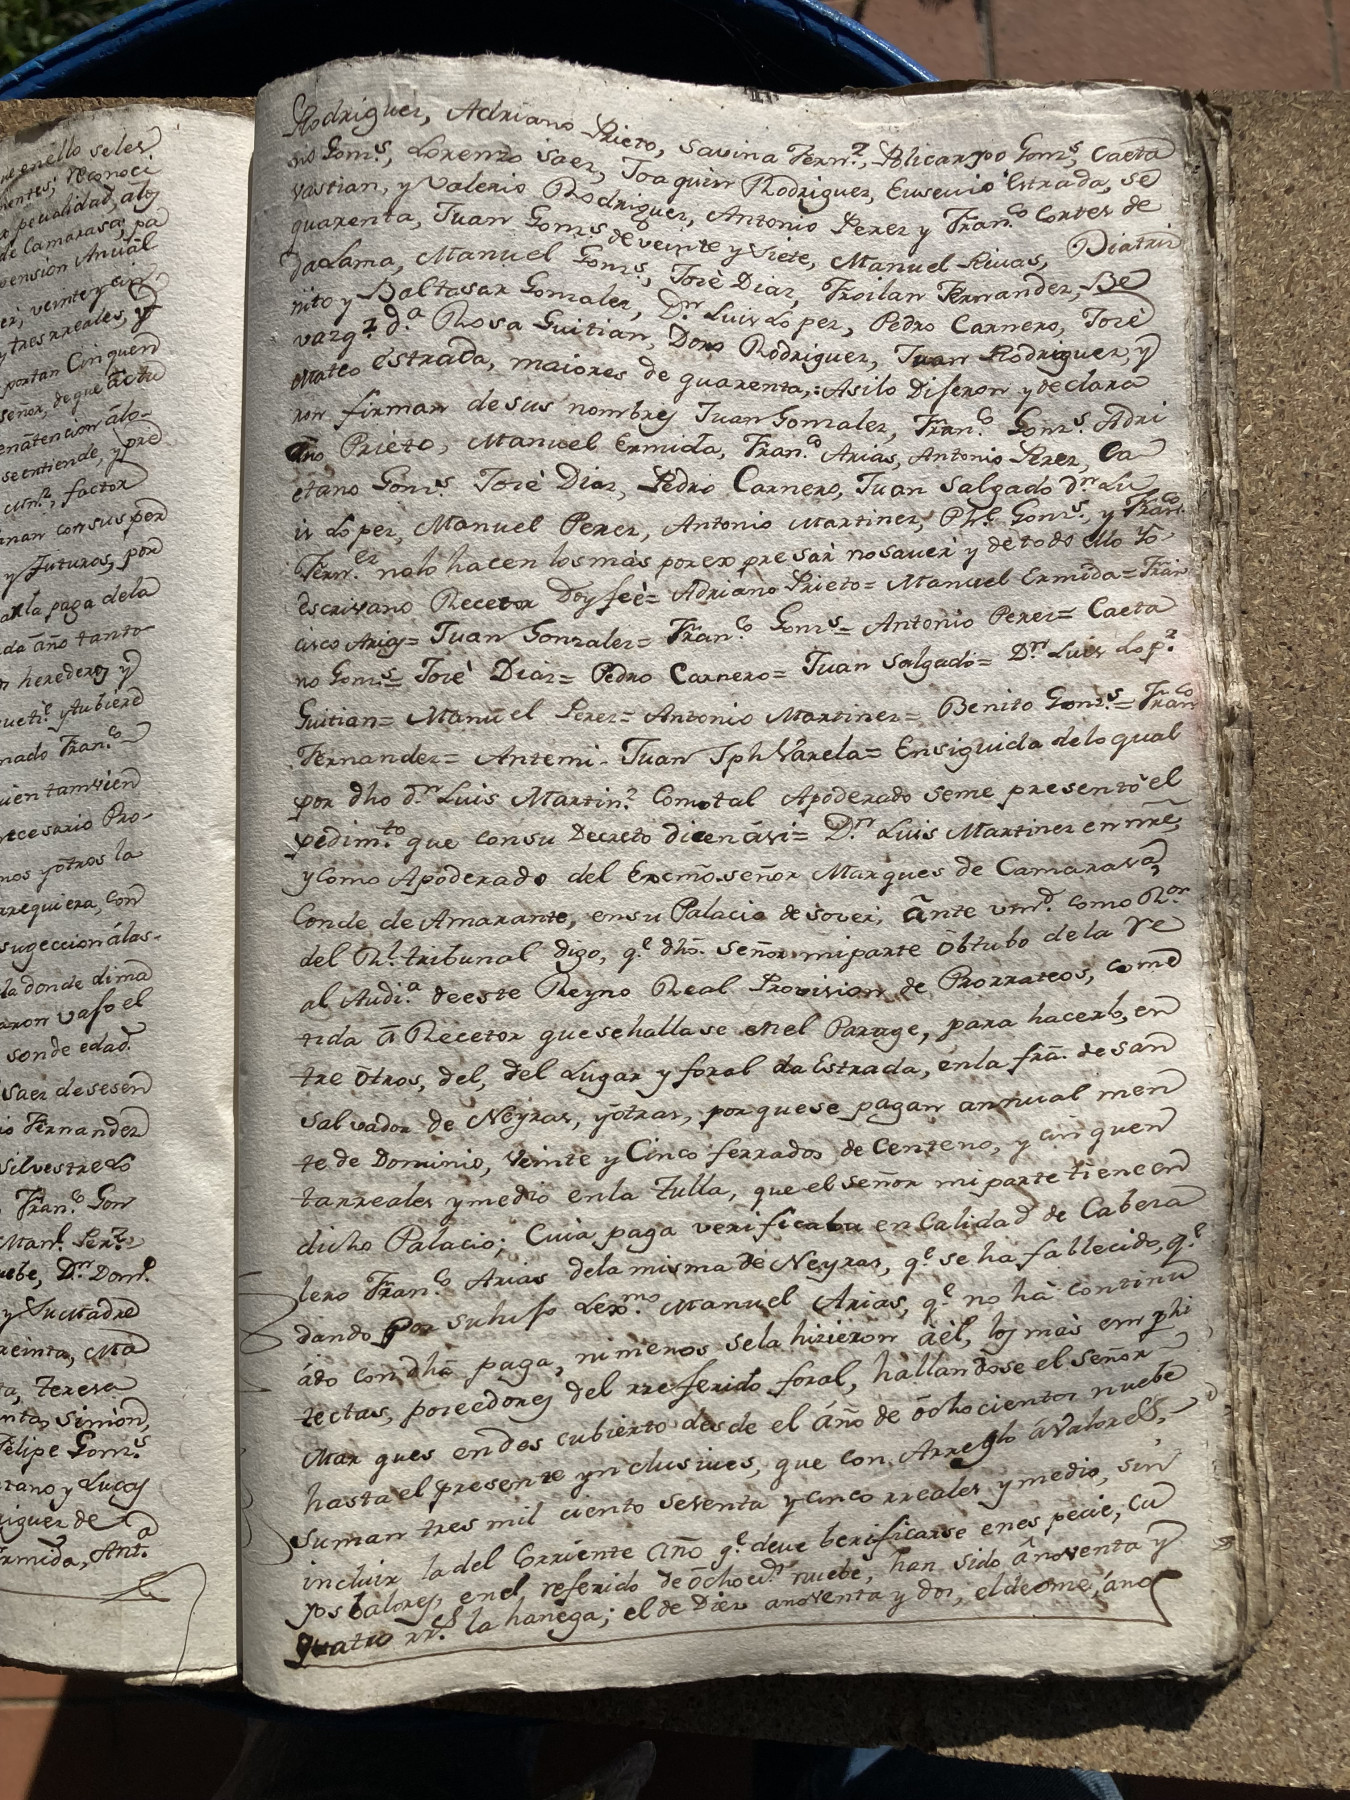 ne enello seles
nentes; reconoci
r penalidad, alq
de Camarasa; pa
pension Anuàl
ei, veinte y cin
y tres rreales, y
portan Cinquen
señor, de que àctu
enātencion álo-
se entiende, y pre
Mrñ., factor
inan con sus per
y futuros, por
ala paga dela
da āño tanto
n herederos y
ueti.e y tubiere
nado Fran.co
uien tamvien
necesario Pro-
nos y ōtros la
rrequiera, con
sugeccion álas-
la donde dima
aron vaso el
son de edad
Saez de sesen
io Fernandez
Silvestre Lo
Fran.co Gon
Man.l Per.z
uebe, D.n Dom.o
y su Madre
reinta, Ma
ta, Teresa
ntas Simon,
Felipe Gom.s
etano y Lucas
riguez de
ermida, Ant.a
Rodriguez, Adriano Prieto, Savina Fern.z, Policarpo Gom.s, Caeta
no Gom.s, Lorenzo Saez, Joaquin Rodriguez, Eusevio Estrada, Se
vastian, y Valerio Rodriguez, Antonio Perez y Fran.co Cortes de
quarenta, Juan Gom.s de veinte y Siete, Manuel Rivas, Diatriz
da Lama, Manuel Gom.s, Josè Diaz, Froilan Fernandez, Be
nito y Baltasar Gonzalez, D.n Luis Lopez, Pedro Carnero, Josè
varq.z d.a Rosa Guitian, Dom.o Rodriguez, Juan Rodriguez, y
Mateo Estrada, maiores de quarenta,: Asilo Diseron y declara
ron firman de sus nombres Juan Gonzalez, Fran.co Gom.s Adri
ano Prieto, Manuel Ermida, Fran.co Arias, Antonio Perez, Ca
etano Gom.s Josè Diaz, Pedro Carnero, Juan Salgado D.n Lu
is Lopez, Manuel Perez, Antonio Martinez, Ph.e Gom.s, y Fran.co
Fern.ez nolo hacen los más por expresar no saver y de todo ello Yo-
escrivano Recetor Doy feè= Adriano Prieto= Manuel Ermida= Fran
cisco Arias= Juan Gonzalez= Fran.co Gom.s= Antonio Perez= Caeta
no Gom.s= Josè Diaz= Pedro Carnero= Juan Salgado= D.n Luis Lop.z
Guitian= Manuel Perez= Antonio Martinez= Benito Gom.s= Fran.co
Fernandez= Antemi- Juan Jph Varela= Enseguida delo qual
por dho d.n Luis Martin.z Como tal Apoderado seme presentò el
pedim.to que consu Decreto dicen ási= D.n Luis Martinez en nre,
y como Apoderado del Excmo. señor Marques de Camarasa,
Conde de Amarante, ensu Palacio de sover, ānte vmd. como R.or
del R.l tribunal digo, q.e dho. Señor mi parte ōbtubo de la Re
al Audi.a deeste Reyno Real Provision de Prorrateos, come
tida ā Recetor que se hallase en el Parage, para hacerlo, en
tre ōtros, del, del Lugar y foral da Estrada, enla fra. de san
Salvador de Neyras, y ōtras, por que se pagan annual men
te de Dominio, veinte y Cinco ferrados de Centeno, y cin quen
ta rreales y medio en la Tulla, que el señor mi parte tiene en
dicho Palacio; Cuia paga verificaba en Calidad de Cabeza
lero Fran.co Arias dela misma de Neyras, q.e se ha fallecido, q.e
dando por su hijo Lex.mo Manuel Arias, q.e no hà continu
ádo con dha paga, ni menos sela hizieron áèl, los más emphi
tectas, poseedores del rreferido foral, hallandose el señor
Marques endes cubierto desde el áño de ōchocientos nuebe
hasta el presente ynclusives, que con Arreglo áValores,
suman tres mil ciento setenta y cinco rreales y medio, sin
incluir la del Corriente Año q.e deve berificarse enes pecie, Cu
yos balores, en el referido de ōchoci.s nuebe, han sido ā noventa y
quatro rr.s la hanega; el de Diez anoventa y dos, el de onze, áno